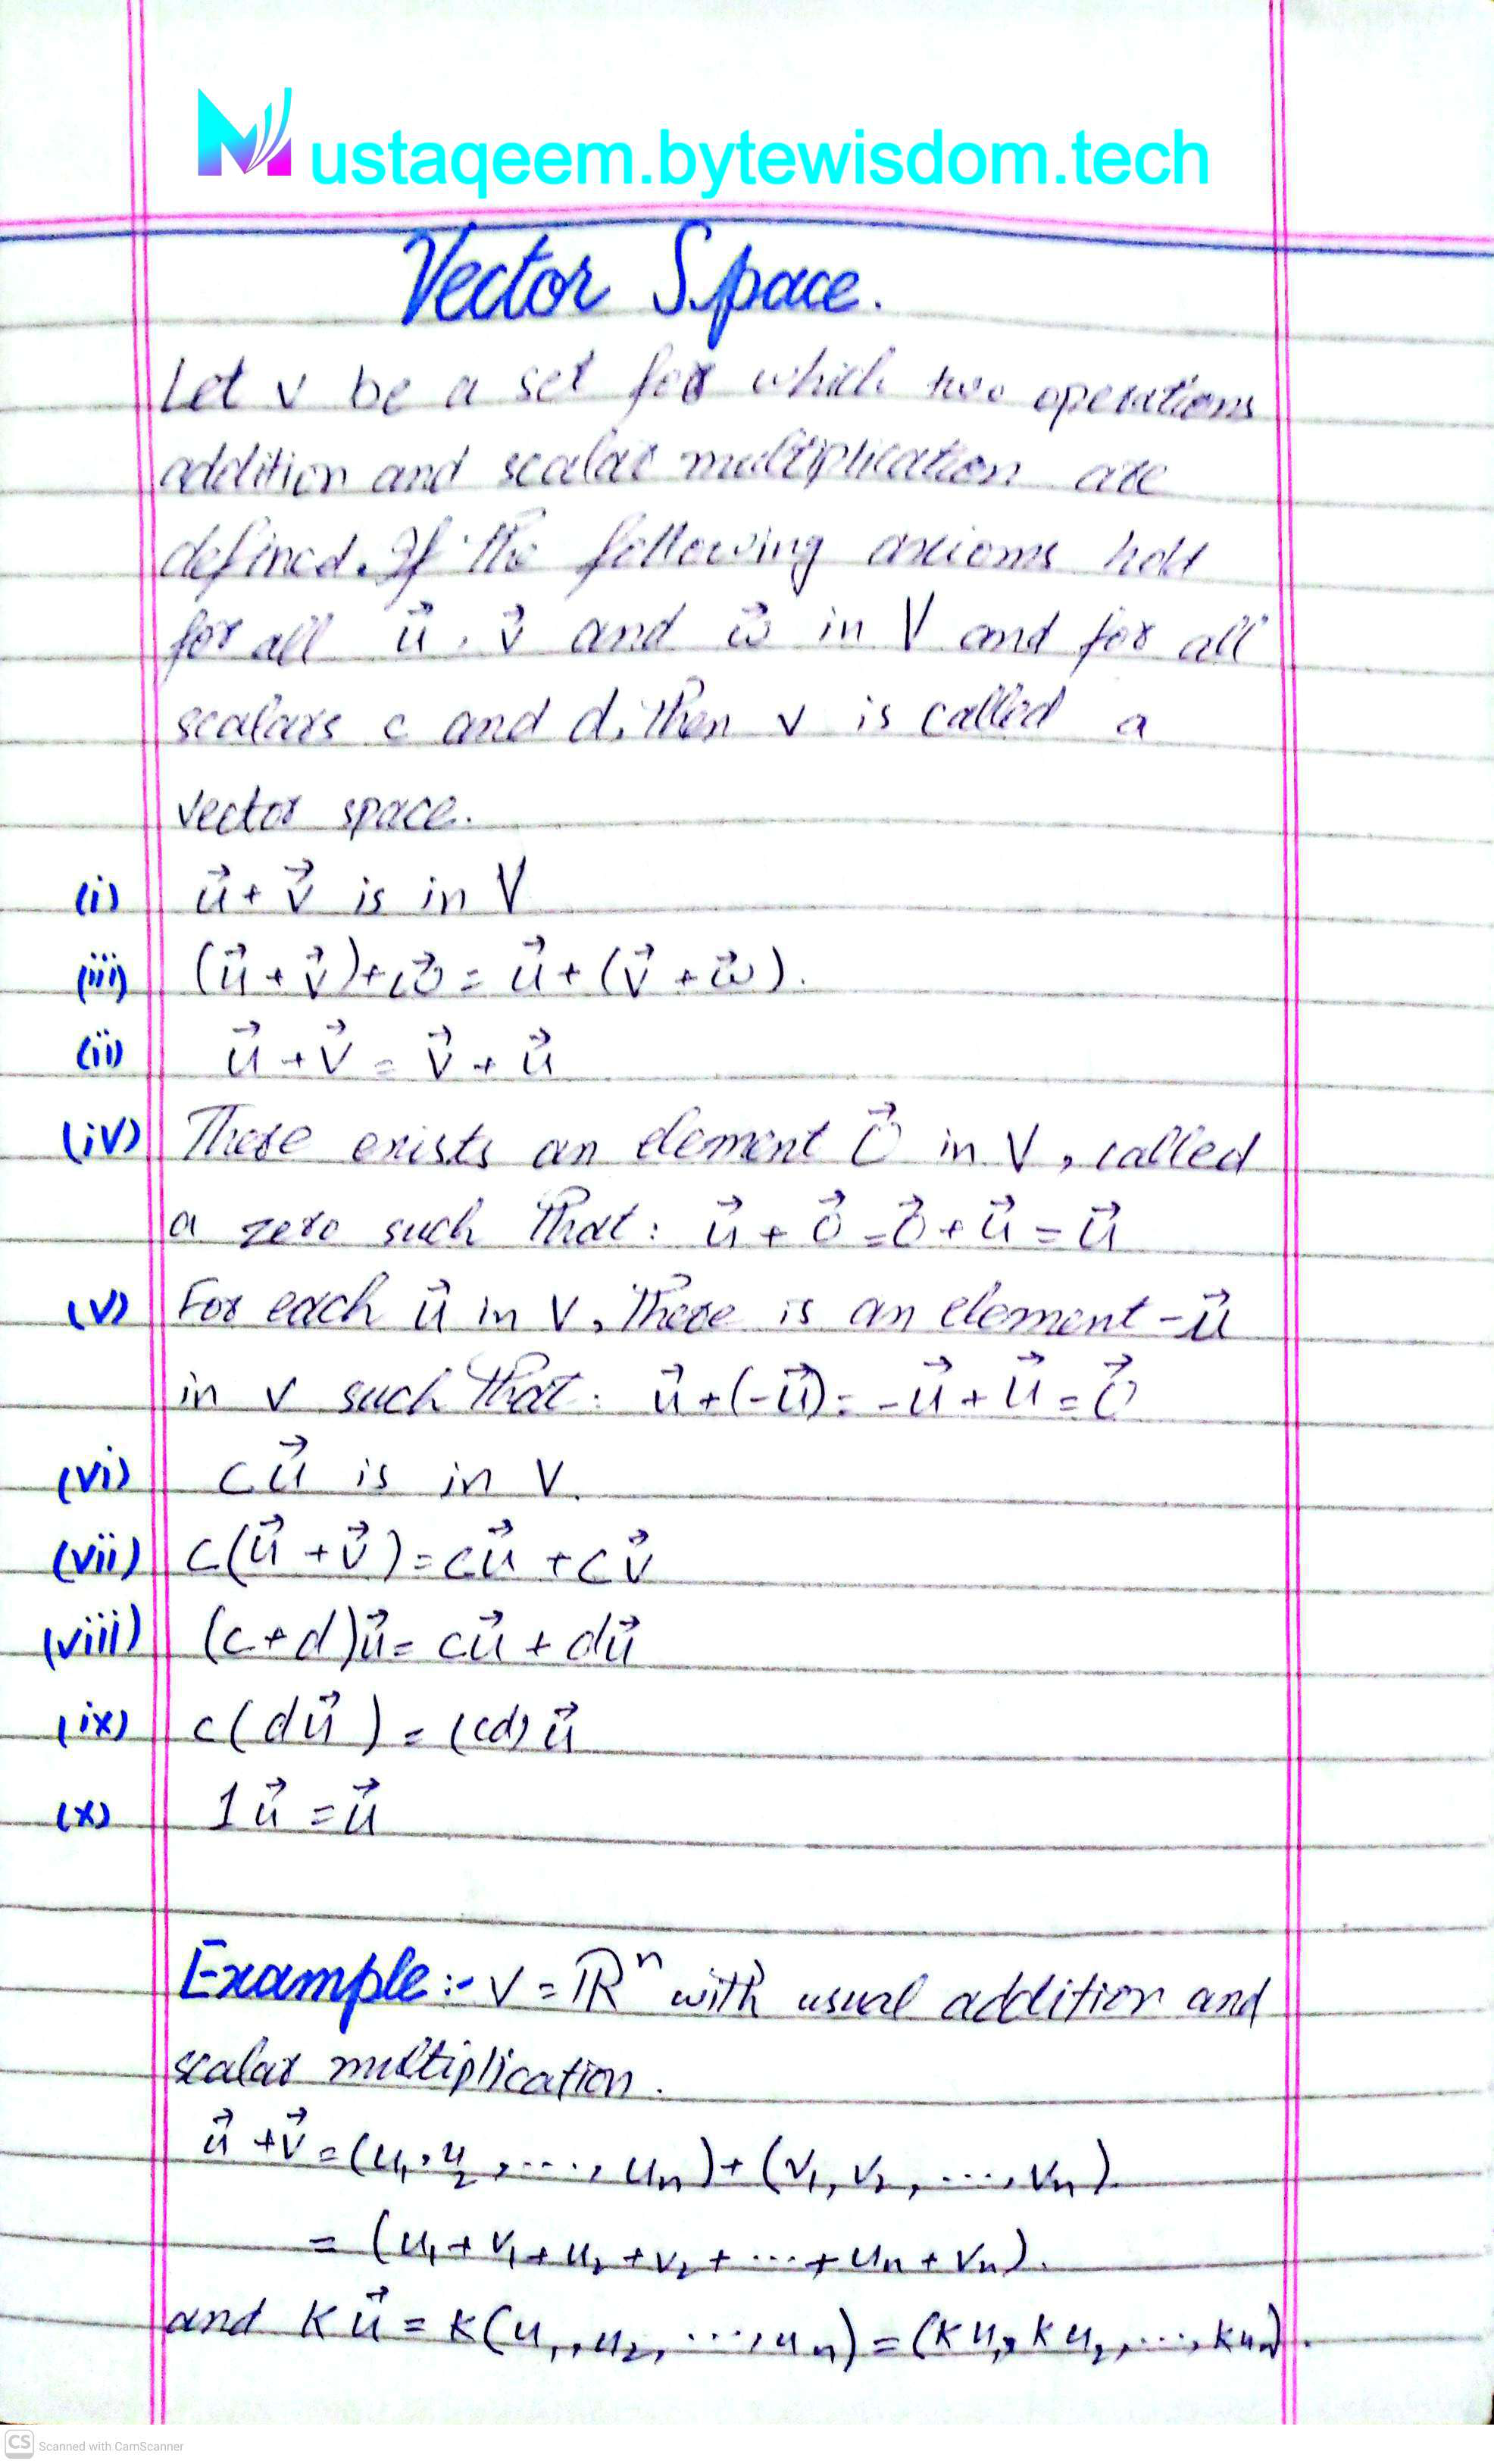 Mustaqeem.bytewisdom.tech
Vector Space.
Let v be a set for which two operations
addition and scalar multiplication are
defined. If the following axioms hold
for all u⃗, v⃗ and w⃗ in V and for all
scalars c and d, then v is called a
vector space.
(i) u⃗ + v⃗ is in V
(iii) (u⃗ + v⃗) + w⃗ = u⃗ + (v⃗ + w⃗).
(ii) u⃗ + v⃗ = v⃗ + u⃗
(iv) There exists an element 0⃗ in V, called
a zero such that: u⃗ + 0⃗ = 0⃗ + u⃗ = u⃗
(v) For each u⃗ in V, there is an element -u⃗
in v such that: u⃗ + (-u⃗) = -u⃗ + u⃗ = 0⃗
(vi) cu⃗ is in V.
(vii) c(u⃗ + v⃗) = cu⃗ + cv⃗
(viii) (c + d)u⃗ = cu⃗ + du⃗
(ix) c(du⃗) = (cd)u⃗
(x) 1u⃗ = u⃗
Example:- V = ℝⁿ with usual addition and
scalar multiplication.
u⃗ + v⃗ = (u₁, u₂, ...., uₙ) + (v₁, v₂, ...., vₙ).
= (u₁ + v₁ + u₂ + v₂ + ... + uₙ + vₙ).
and Ku⃗ = K(u₁, u₂, ...., uₙ) = (Ku₁, Ku₂, ...., Kuₙ).
CS Scanned with CamScanner